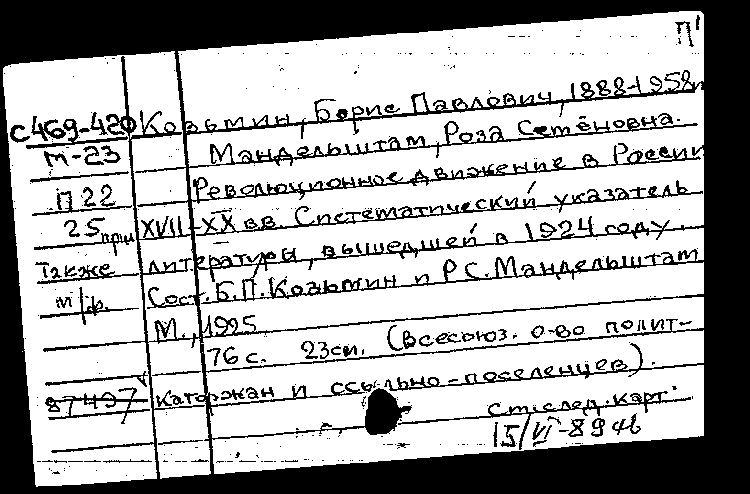 П'
С469-420 Козьмин, Борис Павлович, 1888-1958
м-23 Мандельштам, Роза Семёновна.
П 22 Революционное движение в России
25 прм XVII-XX вв. Систематический указатель
также литературы, вышедшей в 1924 году.
м/ф. Сост. Б.П. Козьмин и Р.С. Мандельштам
М., 1925
76 с. 23 см. (Всесоюз. о-во полит-
87497 каторжан и ссыльно-поселенцев).
См. след. карт.
15/VI-89